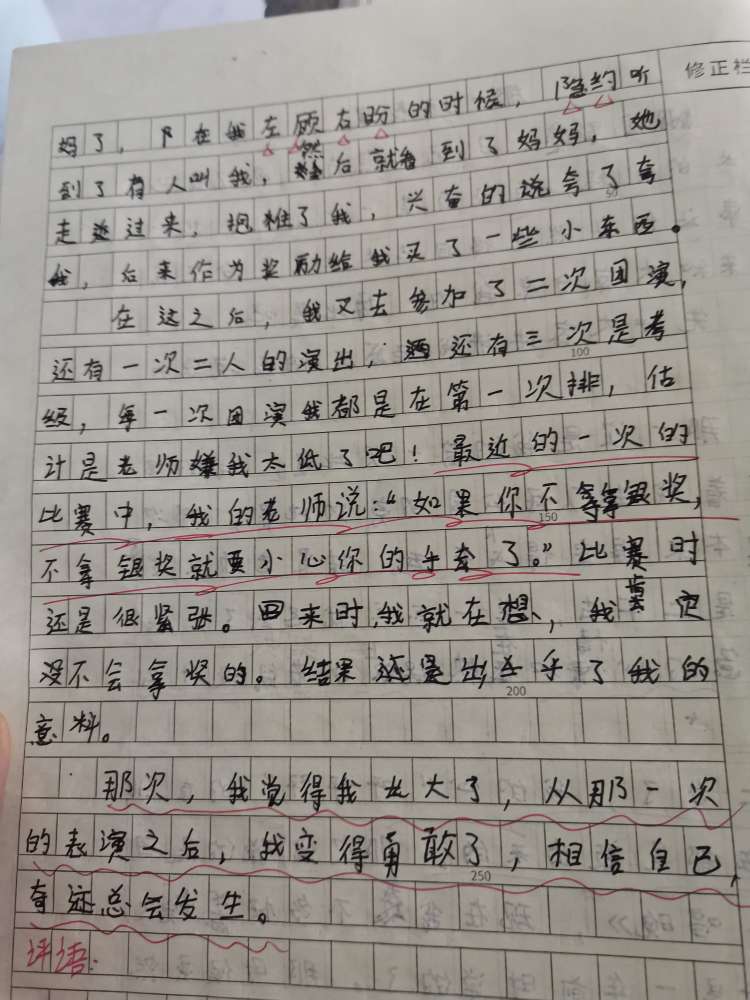 修正栏
妈了，在我左顾右盼的时候，隐约听
到了有人叫我，然后就看到了妈妈，她
走过来，抱住了我，兴奋的说夸了夸
50
我，后来作为奖励给我买了一些小东西。
在这之后，我又去参加了二次团演，
还有一次二人的演出，还有三次是考
100
级，每一次团演我都是在第一次排，估
计是老师嫌我太低了吧！最近的一次的
比赛中，我的老师说：“如果你不拿银奖，
150
不拿银奖就要小心你的手套了。”比赛时
还是很紧张。回来时，我就在想、，我肯定
没不会拿奖的。结果还是出乎了我的
200
意料。
那次，我觉得我长大了，从那一次
的表演之后，我变得勇敢了，相信自己，
250
奇迹总会发生。
评语：